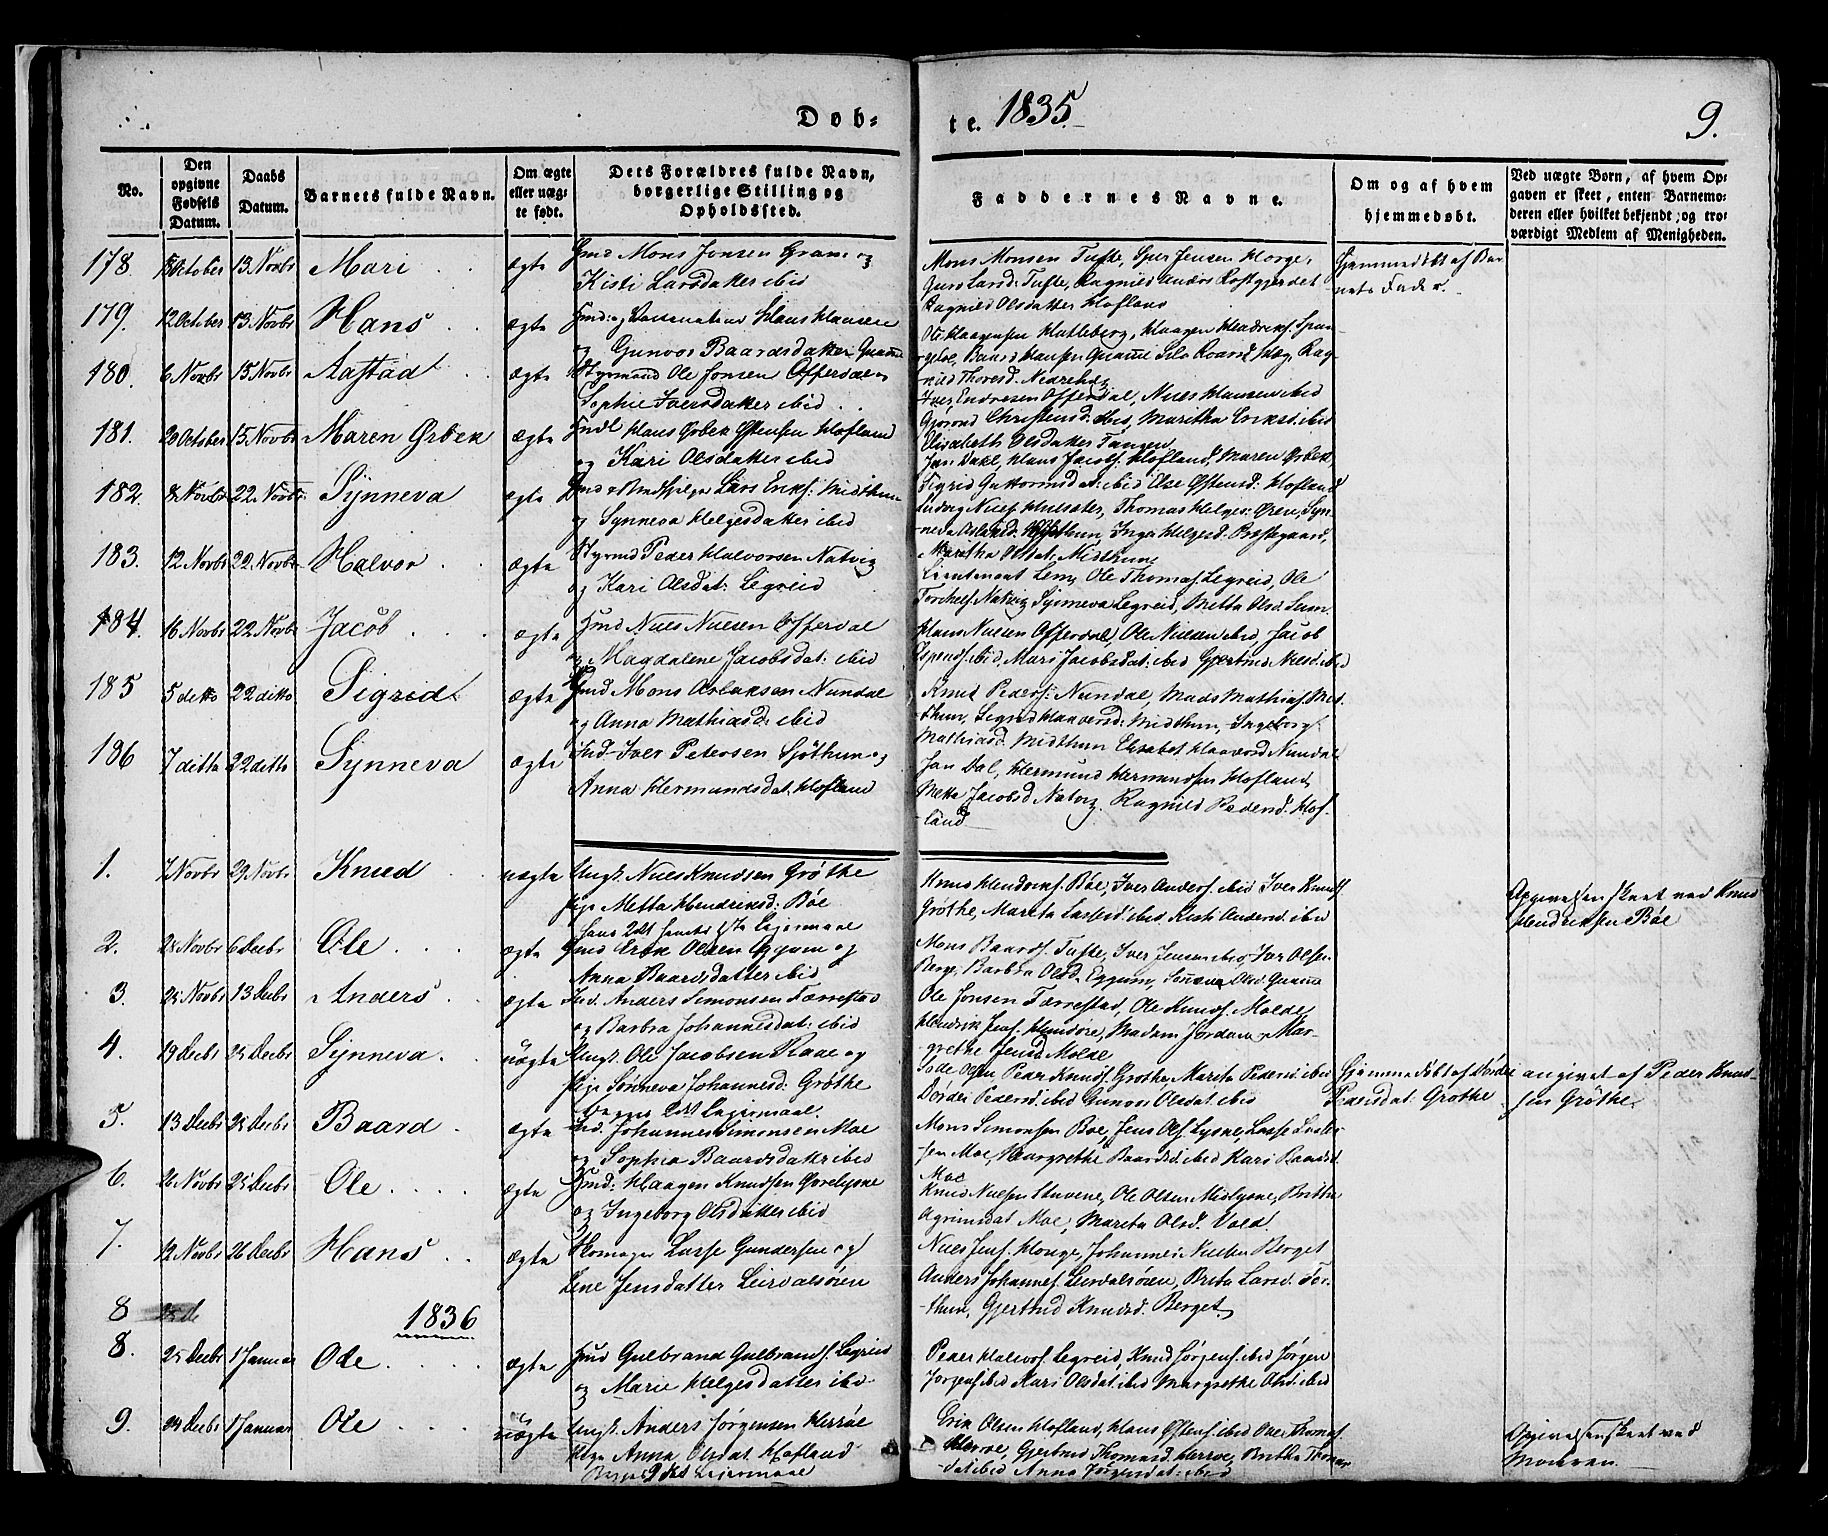 Dob-
te. 1835.
9.
No.
Den opgivne Fødsels Datum.
Daabs Datum.
Barnets fulde Navn.
Om ægte eller uæg- te født.
Dets Forældres fulde Navn, borgerlige Stilling og Opholdssted.
Faddernes Navne.
Om og af hvem hjemmedøbt.
Ved uægte Born, af hvem Op- gaven er skeet, enten Barnemo- deren eller hvilket bekjendt, og tro- værdigt Medlem af Menigheden.
178. October 13. Novbr Mari ægte Gmd Mons Jonsen Gram og
Kisti Larsdatter ibid
Mons Monsen Tufte, Sper Jensen Horge,
Guro Larsd: Tufte, Ragnild Anders
Ragnild Olsdatter Hofland
Hjemmedøbt af Bar-
nets Fader.
179. 12 October 13. Novbr Hans ægte Hans Hansen
og Gunvor Baardsdatter Qvamme
Ole Haagensen Hatleberg, Haagen Hendriks.
Baard Hansen Qvamme
180. 6 Novbr 15 Novbr Aastad ægte Styrmand Ole Jonsen Offerdal og
Sophie Iversdatter ibid
Iver Endresen Offerdal, Niels Hansen ibid
Christensd: ibid, Maritha Eriksd ibid
Elisabeth Olsdatter Tangen
181. 20 October 15. Novbr Maren Ørbek ægte Hans Ørbek Østensen Hofland
og Kari Olsdatter ibid
Jan Dahl, Hans Jacobs: Hofland, Maren Ørbek,
Sigrid Guttormsdat: ibid Else Østensd: Hofland
182. 8 Novbr 22. Novbr: Synneva ægte Lars Eriks: Midthun
og Synneva Helgesdatter ibid
Ludvig Niels Thomas Helges: Øren, Syn-
Inga Helgesd: Prestegaard,
Maritha Olsdat: Midthun
183. 12 Novbr 22. Novbr Halvor ægte Styrmd Peder Halvorsen Natvig
og Kari Olsdat: Legreid
Lieutenant Lem, Ole Thomas: Legreid, Ole
Torchels: Natvig Synneva Legreid, Metta Olsd:
184. 16 Novbr 22. Novbr Jacob ægte Gmd Niels Nielsen Offerdal
og Magdalene Jacobsdat: ibid
Hans Nielsen Offerdal, Ole Nielsen ibid, Jacob
Espends: ibid, Mari Jacobsdat: ibid Gjertrud Nielsd: ibid
185 5 ditto 22 ditto Sigrid ægte Gmd Mons Aslaksen Nundal
og Anna Mathiasd: ibid
Knud Peders: Nundal, Mads Mathias: Mid-
thun, Sigrid Haavarsd: Midthun, Ingeborg
Mathiasd: Midthun Elisabet Haavard Nundal
186 7 ditto 22 ditto Synneva ægte Iver Petersen Sjøthun og
Anna Hermundsdat: Hofland
Jan Dal, Hermund Hermundsen Hofland,
Metta Jacobsd Natvig. Ragnild Pedersd: Hof-
land
1. 7 Novbr 29 Novbr Knud uægte Ungk: Niels Knudsen Grøthe
Pige Metta Hendriksd: Bøe
Knud Hendriks: Bøe, Iver Anders: ibid Iver Knuds
Grøthe, Marita Lassesd: ibid Kisti Andersd: ibid
Opgivelsen skeet ved Knud
Hendriksen Bøe
2. 28 Novbr 6 Decbr Ole ægte Gmd Erik Olsen Eggum og
Anna Baardsdatter ibid
Mons Baards: Tufte, Iver Jensen ibid, Iver Olsen
Berge, Barbra Olsd: Eggum, Olsd: Qvamme
3. 25 Novbr 13 Decbr Anders ægte Anders Simonsen Færrestad
og Barbra Johannesdat: ibid
Ole Jonsen Færrestad, Ole Knuds: Molde,
Hendrik Jens: Madam Jordan, Mar-
grethe Jensd: Molde
4. 19 Decbr 25 Decbr Synneva uægte Ungk: Ole Jacobsen Raae og
Pige Sønneva Johannesd: Grøthe
Begges 2det Leiermaal.
Peder Knuds: Grøthe, Marita Pedersd: ibid
Dordei Pedersd: ibid Gunvor Olsdat: ibid
Hjemmedøbt af Dordei
Pedersdat: Grøthe
angivet af Peder Knud-
sen Grøthe.
5. 13 Decbr 25 Decbr Baard ægte Johannes Simonsen Moe
og Sophia Baardsdatter ibid
Mons Simonsen Bøe, Jens Ols: Lysne, Lasse Lasse-
sen Moe, Margrethe Baardsd: ibid Kari Baardsd:
Moe
6. 26 Novbr 25 Decbr Ole ægte Gmd: Haagen Knudsen Øvrelysne
og Ingeborg Olsdatter ibid
Knud Nielsen Stuvene, Ole Olsen Midlysne, Britha
Agrimsdat Moe, Marita Olsd: Vold.
7. 12 Novbr 26 Decbr Hans ægte Skomager Lasse Gundersen og
Lene Jensdatter Leirdalsøren
Niels Jens: Hauge, Johannes Nielsen Berget
Anders Johannes: Leirdalsøren, Brita Larsd:
Gjertrud Knudsd: Berget
8 1836
8. 25 Decbr 1 Januar Ole ægte Gmd Gulbrand Gulbrands: Legreid
og Marie Helgesdatter ibid
Peder Halvors: Legreid, Knud Jørgens: ibid Jørgen
Jørgens: ibid Kari Olsdat: ibid Margrethe Olsd: ibid
9. 24 Decbr 1 Januar Ole uægte Ungk: Anders Jørgensen Herrøe
Pige Anna Olsdat Hofland
Begges 2det Leiermaal
Erik Olsen Hofland, Hans Østens: ibid Ole Thomas:
Herrøe, Gjertrud Thomasd: Herrøe, Britha Thomas-
dat: ibid Anna Jørgensdat: ibid
Opgivelsen skeet ved
Moderen